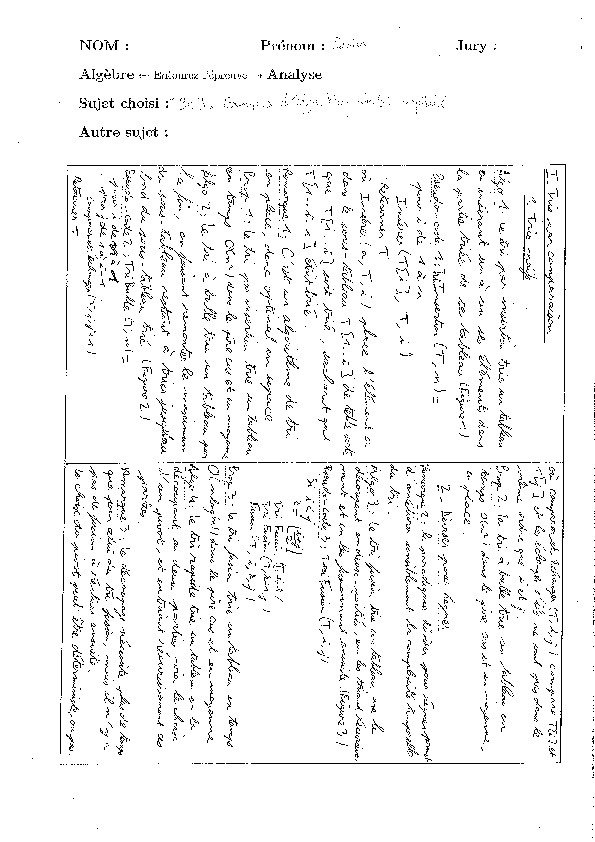 NOM :
Prénom :
Jury :
Algèbre ← Entourez l'épreuve → Analyse
Sujet choisi : 903.
Autre sujet :
I. Tris par comparaison
1. Tris naïfs
Algo 1: Le tri par insertion trie un tableau
en insérant un à un ses éléments dans
la partie triée de ce tableau (Figure 1)
Pseudo-code 1: TriInsertion (T, n) =
pour i de 1 à n
Insérer (T[i], T, i)
Retourner T
où Insérer (a, T, i) place l'élément a
dans le sous-tableau T[1..i] de telle sorte
que T[1..i] soit trié, sachant que
T[1..i-1] était trié.
Remarque 1: C'est un algorithme de tri
en place, donc optimal en espace
Prop. 1: Le tri par insertion trie un tableau
en temps O(n²) dans le pire cas et en moyenne
Algo 2: Le tri à bulle trie un tableau par
la fin, en faisant remonter le maximum
du sous-tableau restant à trier jusqu'au
bout du sous-tableau trié (Figure 2)
Pseudo-code 2: TriBulle (T, n) =
pour i de n à 1
pour j de 1 à i-1
Retourner T
où comparer et échanger (T, i, j) compare T[i] et
T[j] et les échange s'ils ne sont pas dans le
même ordre que i et j.
Prop 2: Le tri à bulle trie un tableau en
temps O(n²) dans le pire cas et en moyenne,
en place.
2 - Diviser pour régner
Remarque 2: Le paradigme diviser pour régner permet
d'améliorer sensiblement la complexité temporelle
du tri.
Algo 3: Le tri fusion trie un tableau en le
découpant en deux parties, en les triant récursive-
ment et en les fusionnant ensuite (Figure 3)
Pseudo-code 3: TriFusion (T, i, j)
Si i < j
Tri Fusion
Tri Fusion
Fusion
Prop 3: Le tri fusion trie un tableau en temps
O(n log(n)) dans le pire cas et en moyenne
Algo 4: Le tri rapide trie un tableau en le
découpant en deux parties, via le choix
d'un pivot, et en triant récursivement ces
parties
Remarque 3: Le découpage nécessite plus de temps
que pour celui du tri fusion, mais il n'y a
pas de fusion à faire ensuite.
Le choix du pivot peut être déterministe, ou pas